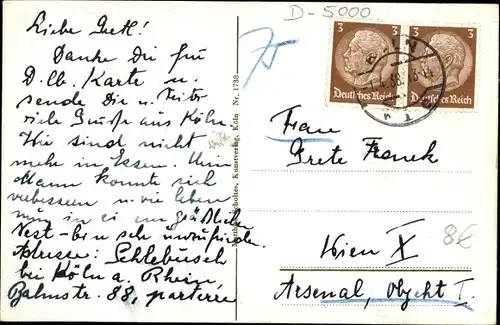 D-5000
Liebe Gretl!
Danke Dir für
D. lb. Karte u.
sende Dir u.
viele Grüße aus Köln
Wir sind nicht
mehr in Essen. Mein
Mann konnte sich
verbessern u. wir leben
nun in
Nest - bin sehr unzufrieden.
Adresse: Schlebusch
bei Köln a. Rhein,
Bahnstr. 88, parterre
Kunstverlag, Köln Nr. 1738
3 3
Deutsches Reich Deutsches Reich
KÖLN
Frau
Grete Franek
8€
Wien X
Arsenal, Objekt I.